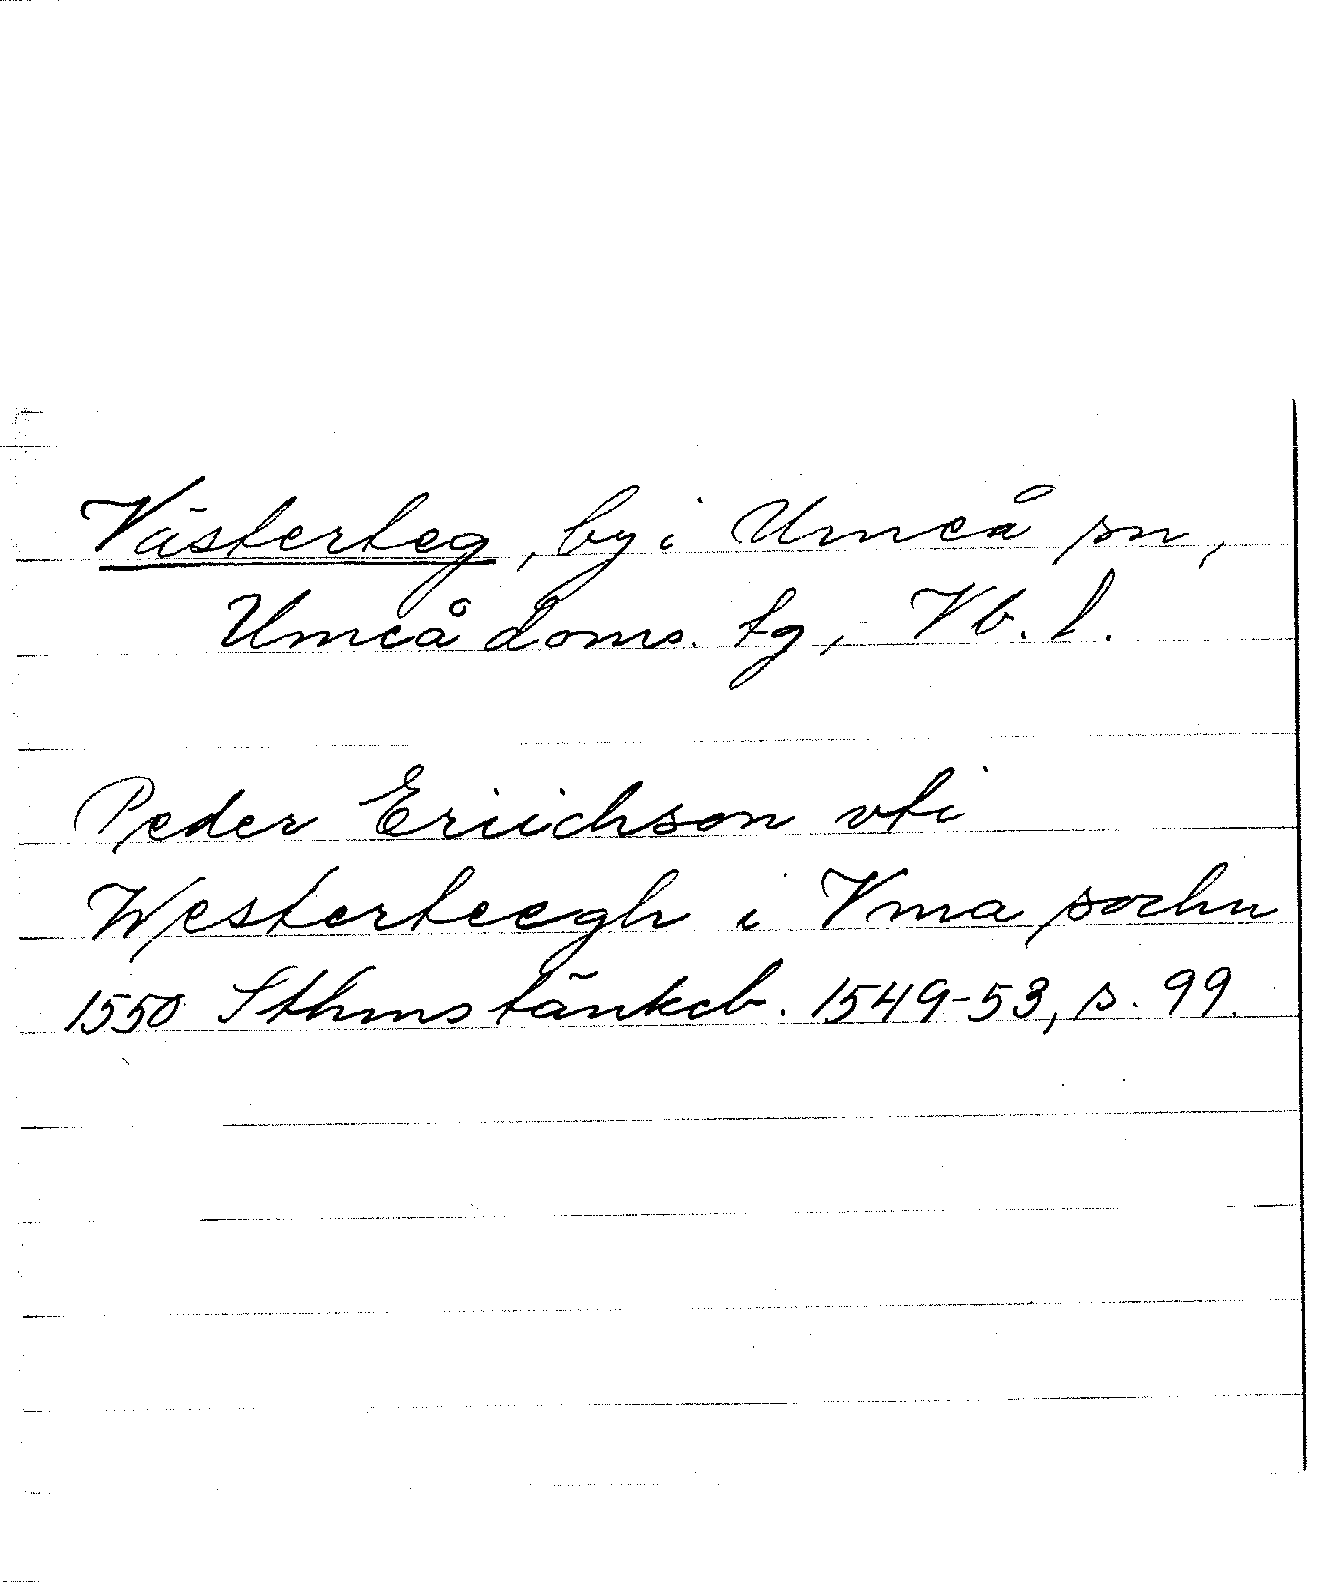 Västerteg, by i Umeå sn,
Umeå doms. tg, Vb. l.
Peder Eriichson vti
Westerteegh i Vma sochn
1550 Sthmstänkeb. 1549-53, s. 99.